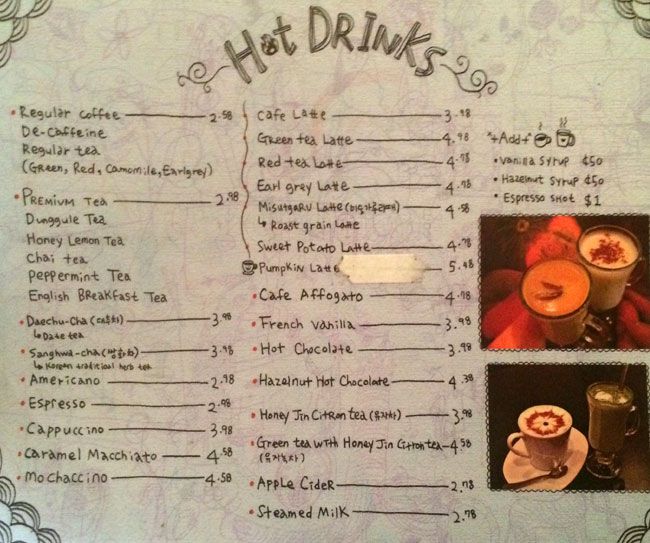 Hot DRINKS
Regular coffee 2.58
De-caffeine
Regular tea
(Green, Red, Camomile, Earlgrey)
Premium Tea 2.98
Dunggule Tea
Honey Lemon Tea
Chai tea
Peppermint Tea
English Breakfast Tea
Daechu-Cha (대추차) 3.98
↳ Date tea
Sanghwa-cha (쌍화차) 3.98
↳ Korean traditional herb tea
Americano 2.98
Espresso 2.98
Cappuccino 3.98
Caramel Macchiato 4.58
Mochaccino 4.58
Cafe Latte 3.98
Green tea Latte 4.98
Red tea Latte 4.78
Earl grey Latte 4.78
Misutgaru Latte (미숫가루라떼) 4.58
↳ Roast grain Latte
Sweet Potato Latte 4.78
Pumpkin Latte 5.48
Cafe Affogato 4.78
French Vanilla 3.98
Hot Chocolate 3.98
Hazelnut Hot Chocolate 4.38
Honey Jin Citron tea (유자차) 3.98
Green tea with Honey Jin Citron tea 4.58
(유자녹차)
Apple Cider 2.78
Steamed Milk 2.78
*+Add+*
Vanilla syrup ¢50
Hazelnut syrup ¢50
Espresso shot $1